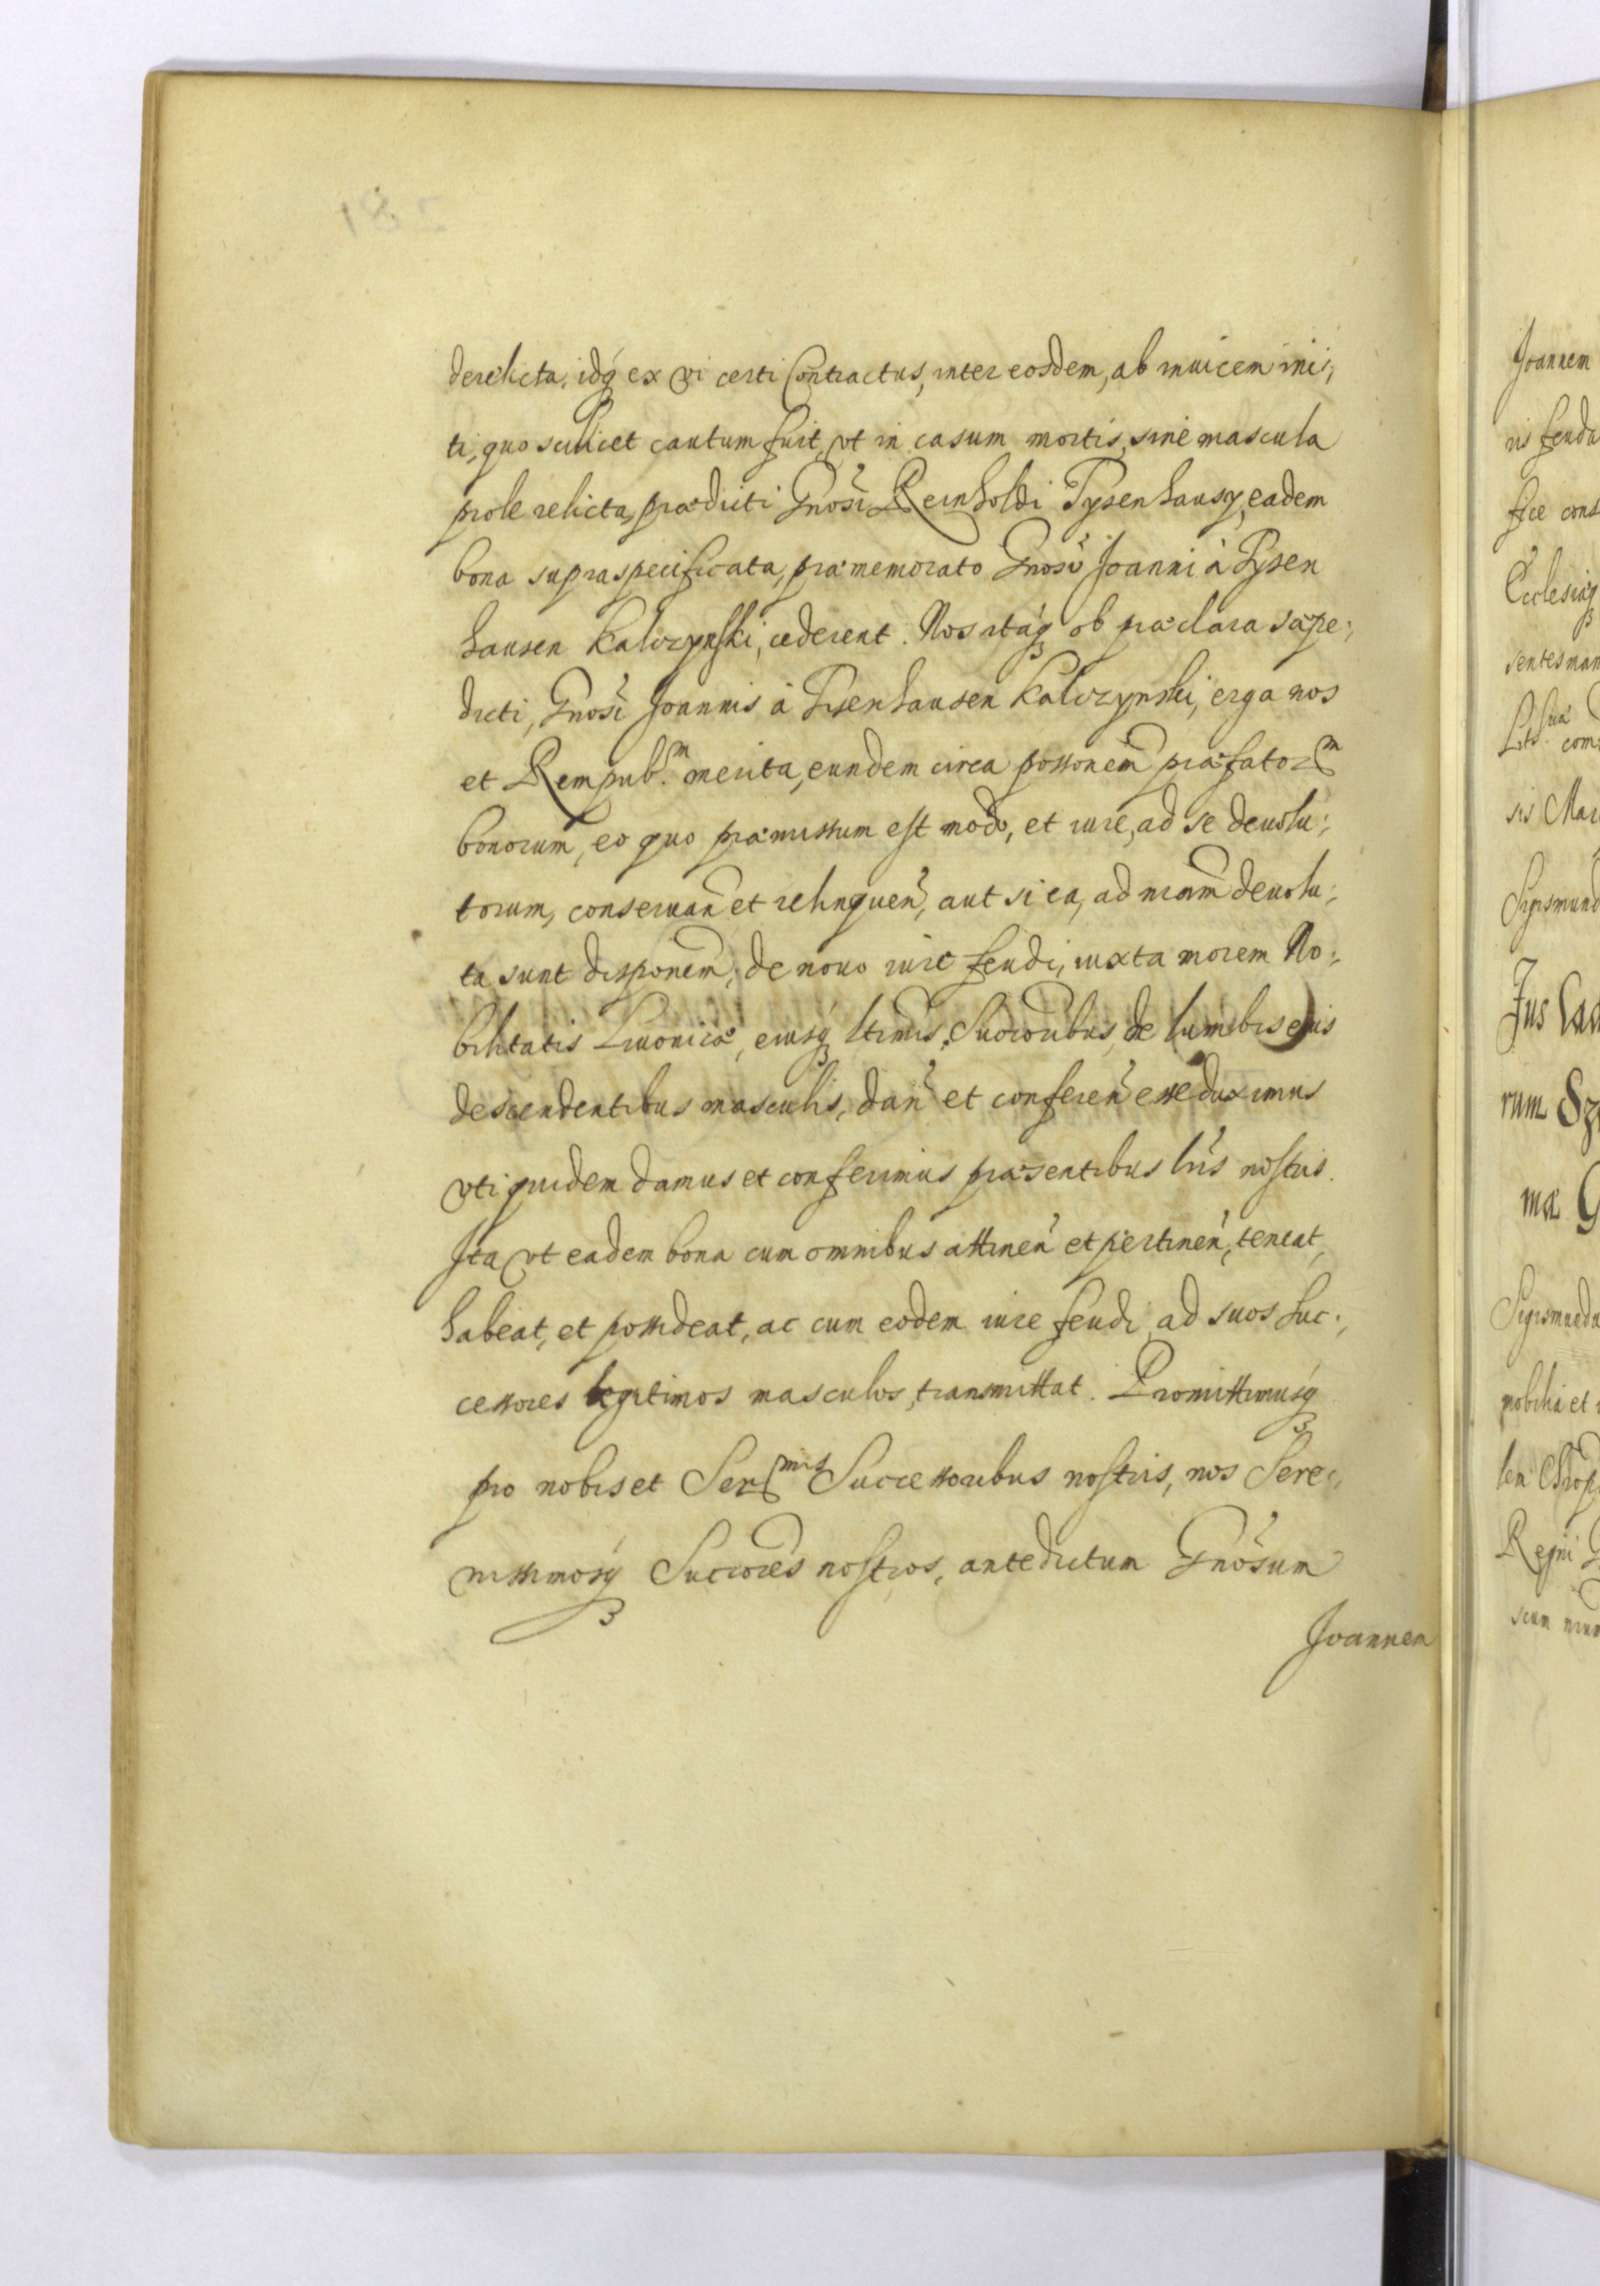 derelicta, idq́ ex vi certi Contractus, inter eosdem, ab inuicem ini:,
ti, quo scilicet cautum fuit, vt in casum mortis, sine mascula
prole relicta, prædicti Gnosi Reinholdi Tysenhausÿ, eadem
bona supraspecificata, præmemorato Gnoso Joanni à Tysen
hausen Kalvzynski, cederent. Nos itáq ob præclara sæpe:,
dicti, Gnosi Joannis à Tisenhausen Kalvzynski, erga nos
et Rempub.m merita, eundem circa possonem præfatorm
bonorum, eo quo præmissum est modo, et iure, ad se deuolu:,
torum, conseruan et relinquen, aut si ea, ad nram deuolu:,
ta sunt disponem, de nouo iure feudi, iuxta morem No:,
bilitatis Liuonicæ, eiusq́ ltimis Succoribus, de lumbis eius
descendentibus masculis, dan et conferen esse duximus
vti quidem damus et conferimus præsentibus lris nostris.
Ita vt eadem bona cum omnibus attinen et pertinen, teneat,
habeat, et possideat, ac cum eodem iure feudi ad suos Suc:,
cessores legitimos masculos, transmittat. Promittimusq́
pro nobis et Sermis Successoribus nostris, nos Sere:,
nissimosq́ Succores nostros, antedictum Gnosum
Joannem
Joannem
ris feudi
Ecclesiaq
sis Mar
Sigismund
Jus Cad
rum
ma G
Sigismundu
mobilia et
Regni G